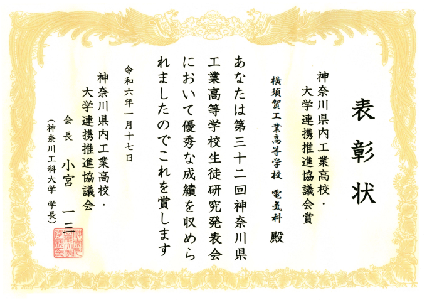 表彰状
神奈川県内工業高校・
大学連携推進協議会賞
横須賀工業高等学校 電気科 殿
あなたは第三十二回神奈川県
工業高等学校生徒研究発表会
において優秀な成績を収めら
れましたのでこれを賞します
令和六年一月十七日
神奈川県内工業高校・
大学連携推進協議会
会長 小宮 一三
(神奈川工科大学 学長)